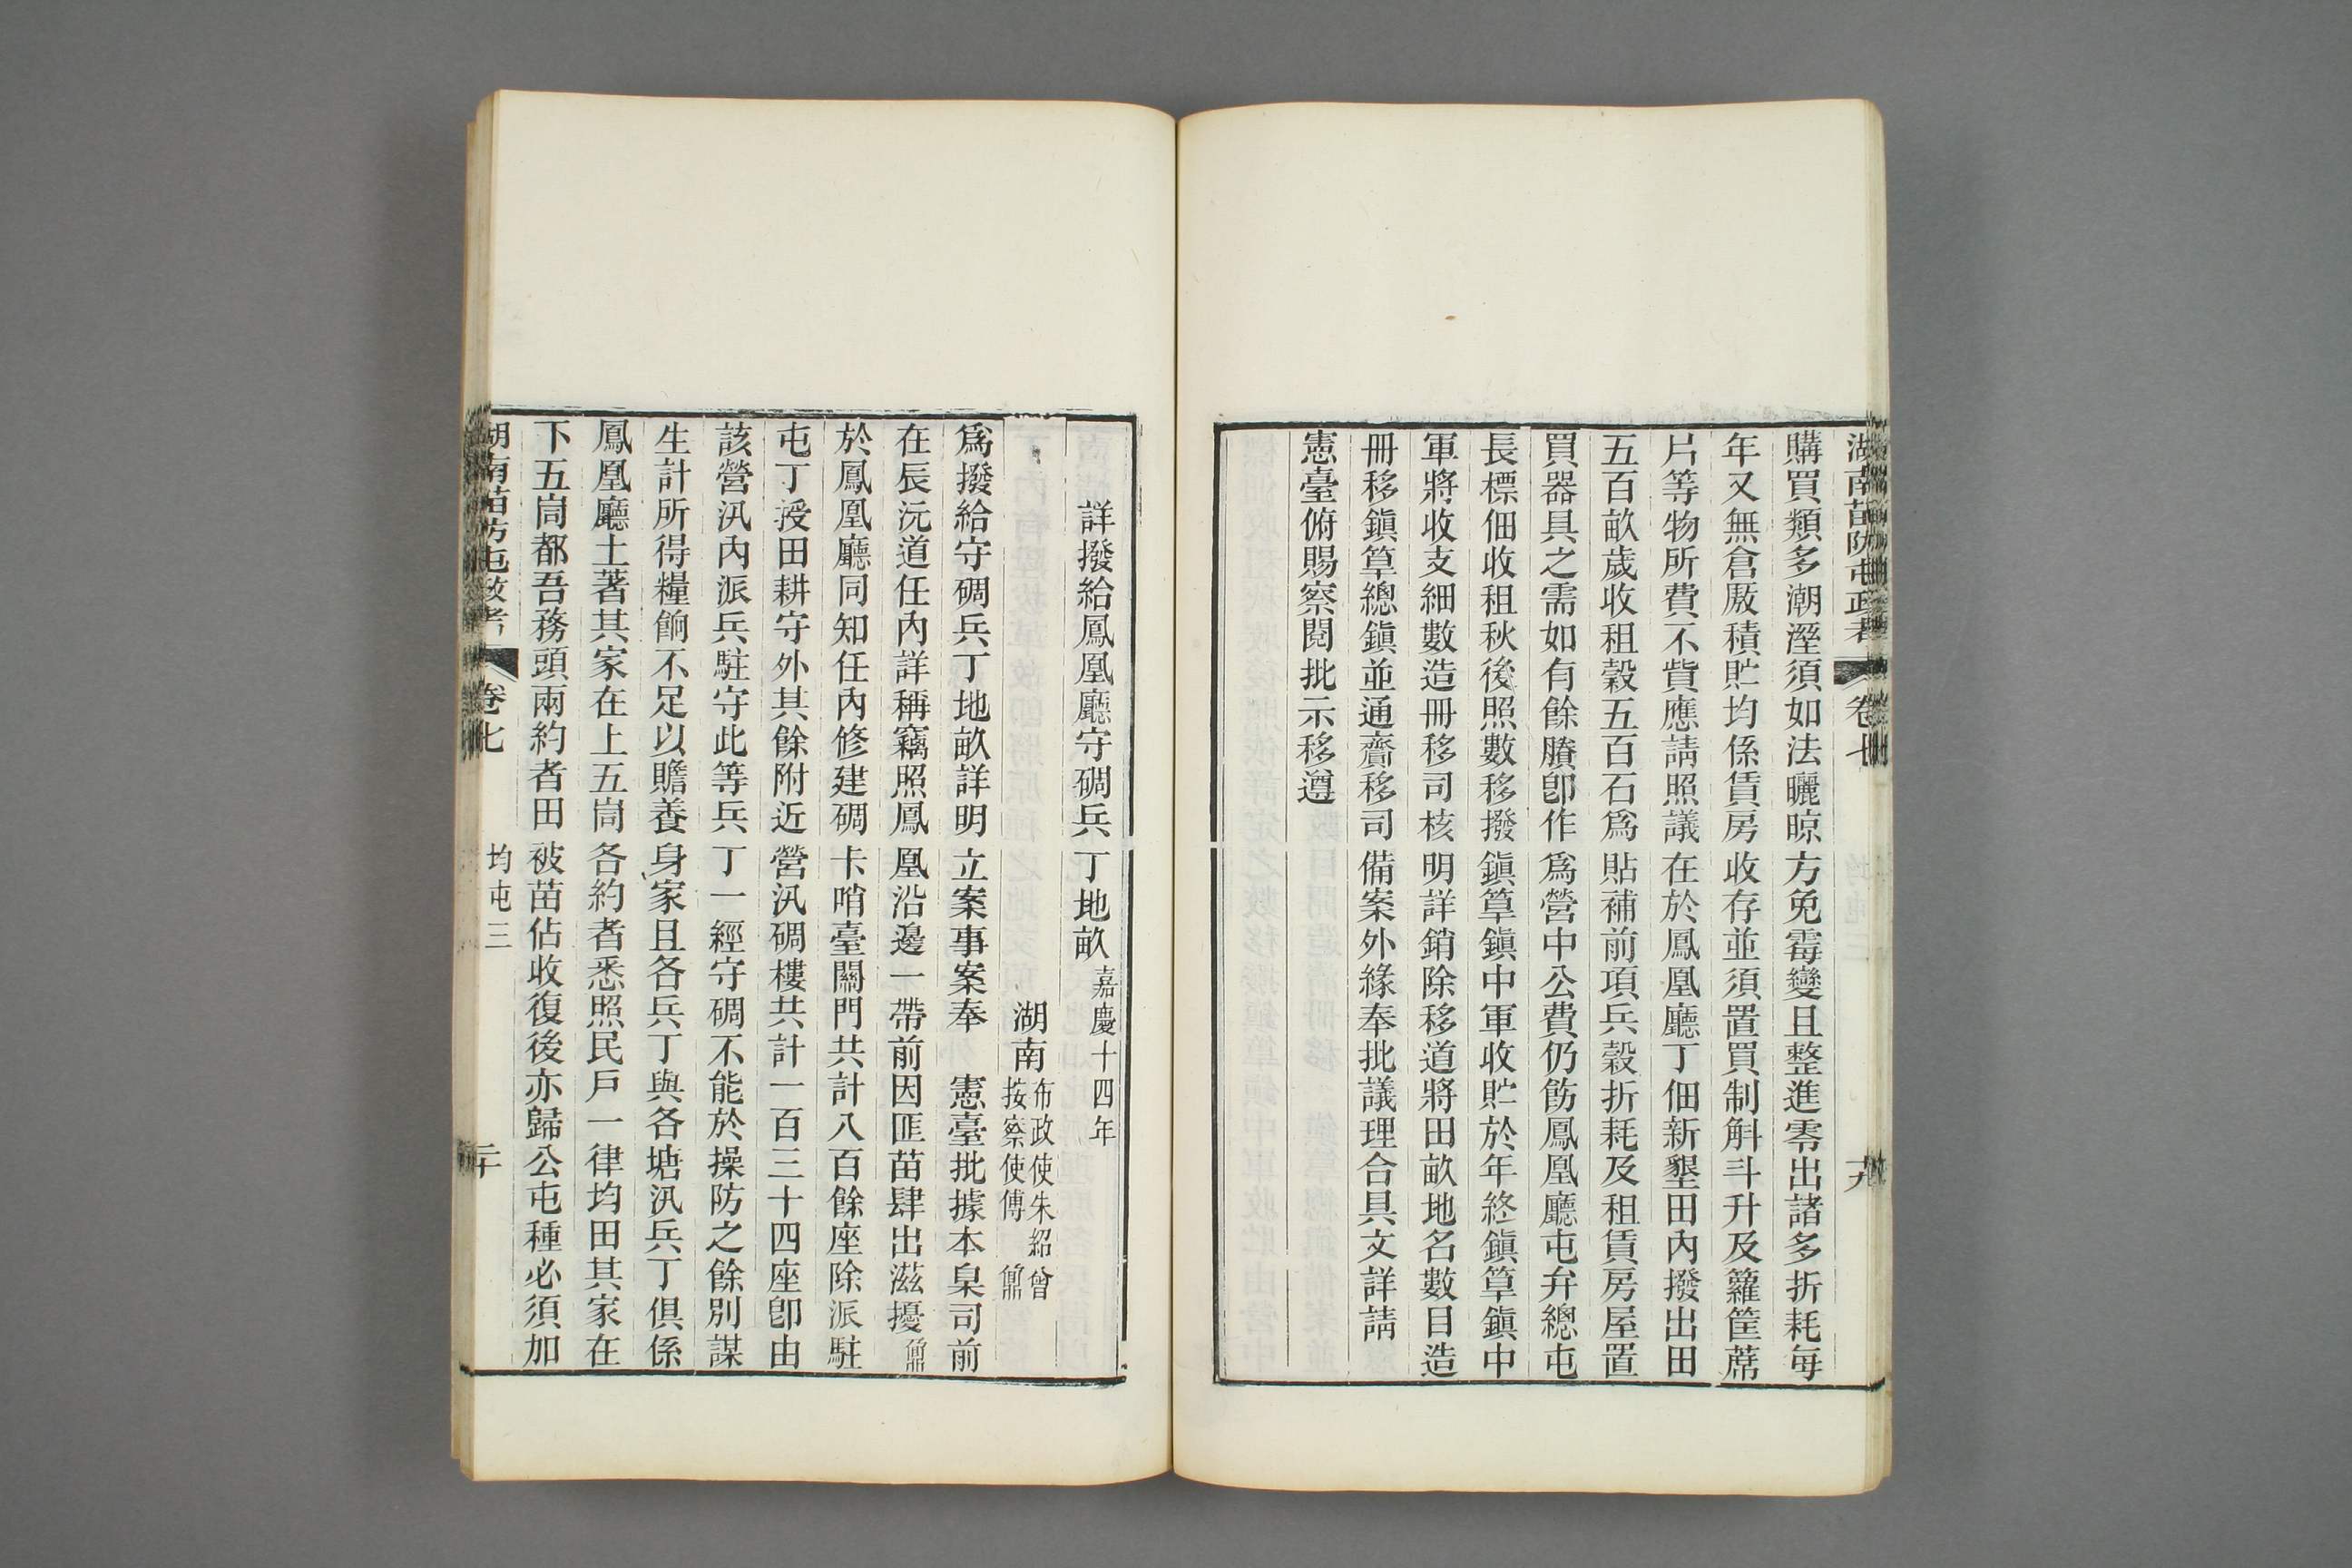 湖南苗防屯政考 卷七 十九
購買類多潮溼須如法曬晾方免霉變且整進零出諸多折耗每
年又無倉厫積貯均係賃房收存並須置買制斛斗升及籮筐蓆
片等物所費不貲應請照議在於鳳凰廳丁佃新墾田內撥出田
五百畝歲收租穀五百石爲貼補前項兵穀折耗及租賃房屋置
買器具之需如有餘賸卽作爲營中公費仍飭鳳凰廳屯弁總屯
長標佃收租秋後照數移撥鎮筸鎮中軍收貯於年終鎮筸鎮中
軍將收支細數造冊移司核明詳銷除移道將田畝地名數目造
冊移鎮筸總鎮並通齎移司備案外緣奉批議理合具文詳請
憲臺俯賜察閱批示移遵
詳撥給鳳凰廳守碉兵丁地畝嘉慶十四年
湖南布政使朱紹曾
按察使傅鼐
爲撥給守碉兵丁地畝詳明立案事案奉 憲臺批據本臬司前
在辰沅道任內詳稱竊照鳳凰沿邊一帶前因匪苗肆出滋擾鼐
於鳳凰廳同知任內修建碉卡哨臺關門共計八百餘座除派駐
屯丁授田耕守外其餘附近營汛碉樓共計一百三十四座卽由
該營汛內派兵駐守此等兵丁一經守碉不能於操防之餘別謀
生計所得糧餉不足以贍養身家且各兵丁與各塘汛兵丁俱係
鳳凰廳土著其家在上五峝各約者悉照民戶一律均田其家在
下五峝都吾務頭兩約者田被苗佔收復後亦歸公屯種必須加
湖南苗防屯政考 卷七 均屯三 二十